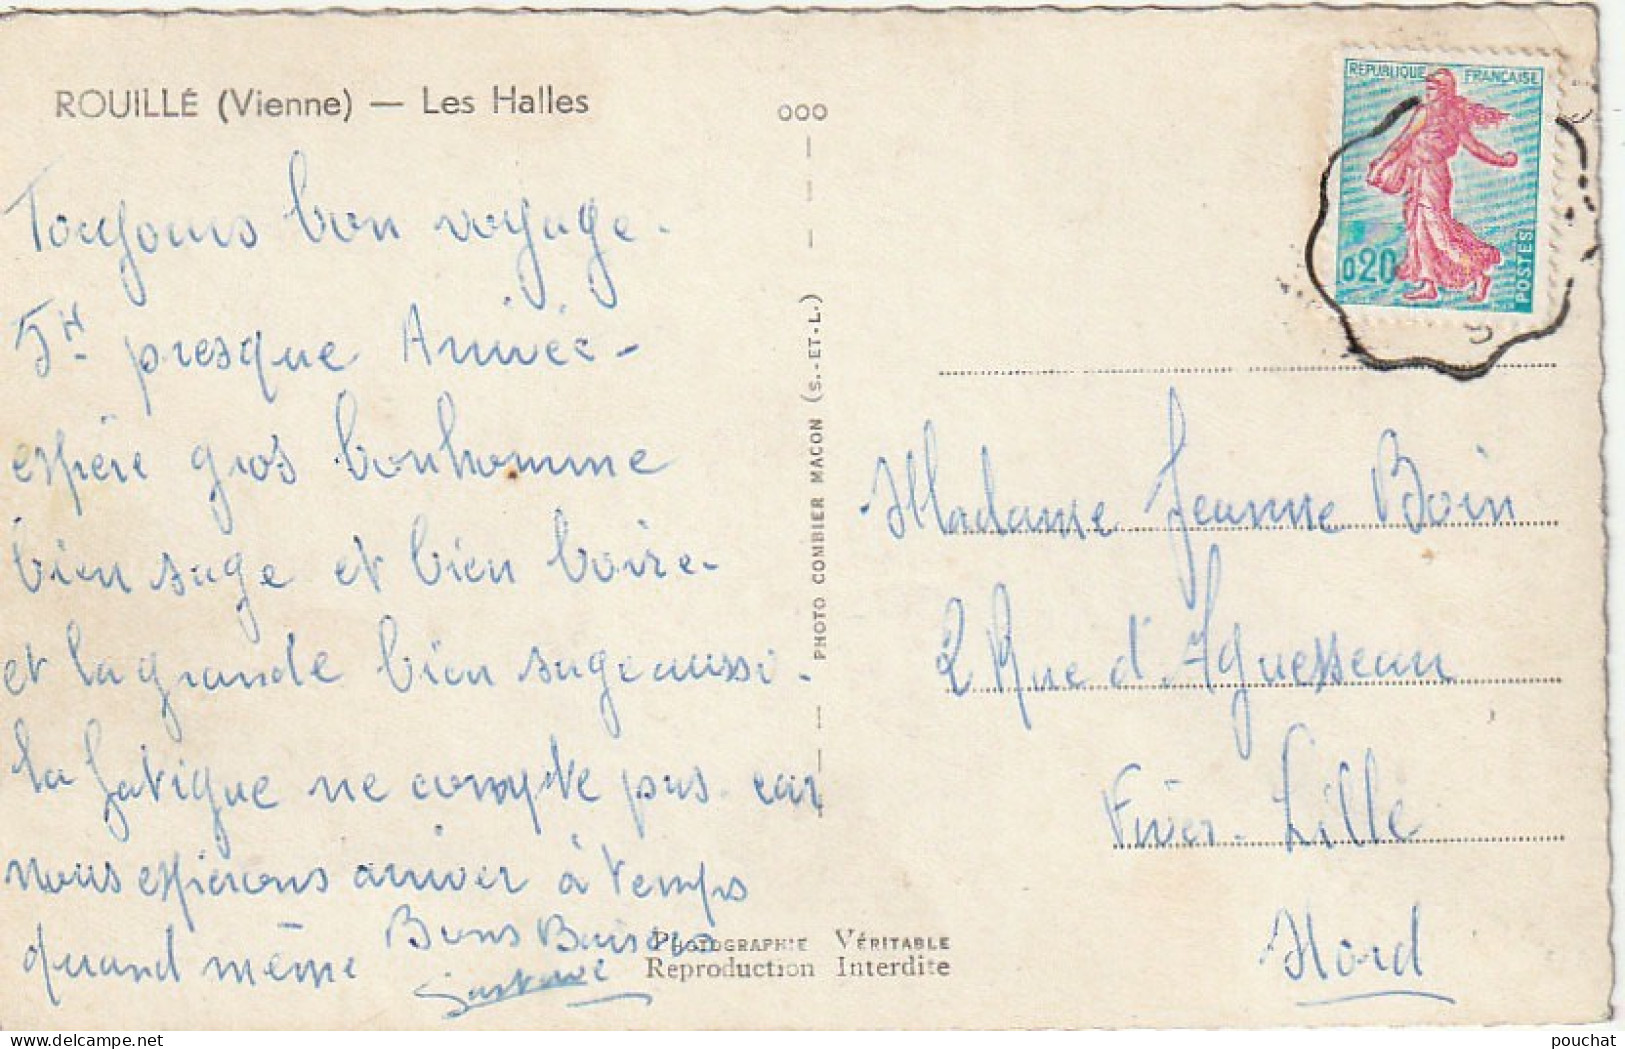 ROUILLÉ (Vienne) — Les Halles
Toujours bon voyage.
5H presque Arrivée -
espère gros bonhomme
bien sage et bien boire -
et la grande bien sage aussi.
la fatigue ne compte pas car
nous espérons arriver à temps
quand même Bons Baisers
Gustave
ooo
PHOTO COMBIER MACON (S.-ET-L.)
PHOTOGRAPHIE VÉRITABLE
Reproduction Interdite
REPUBLIQUE FRANÇAISE
0,20
POSTES
Madame Jeanne Boin
2 Rue d'Aguesseau
Fives-Lille
Nord
pouchat